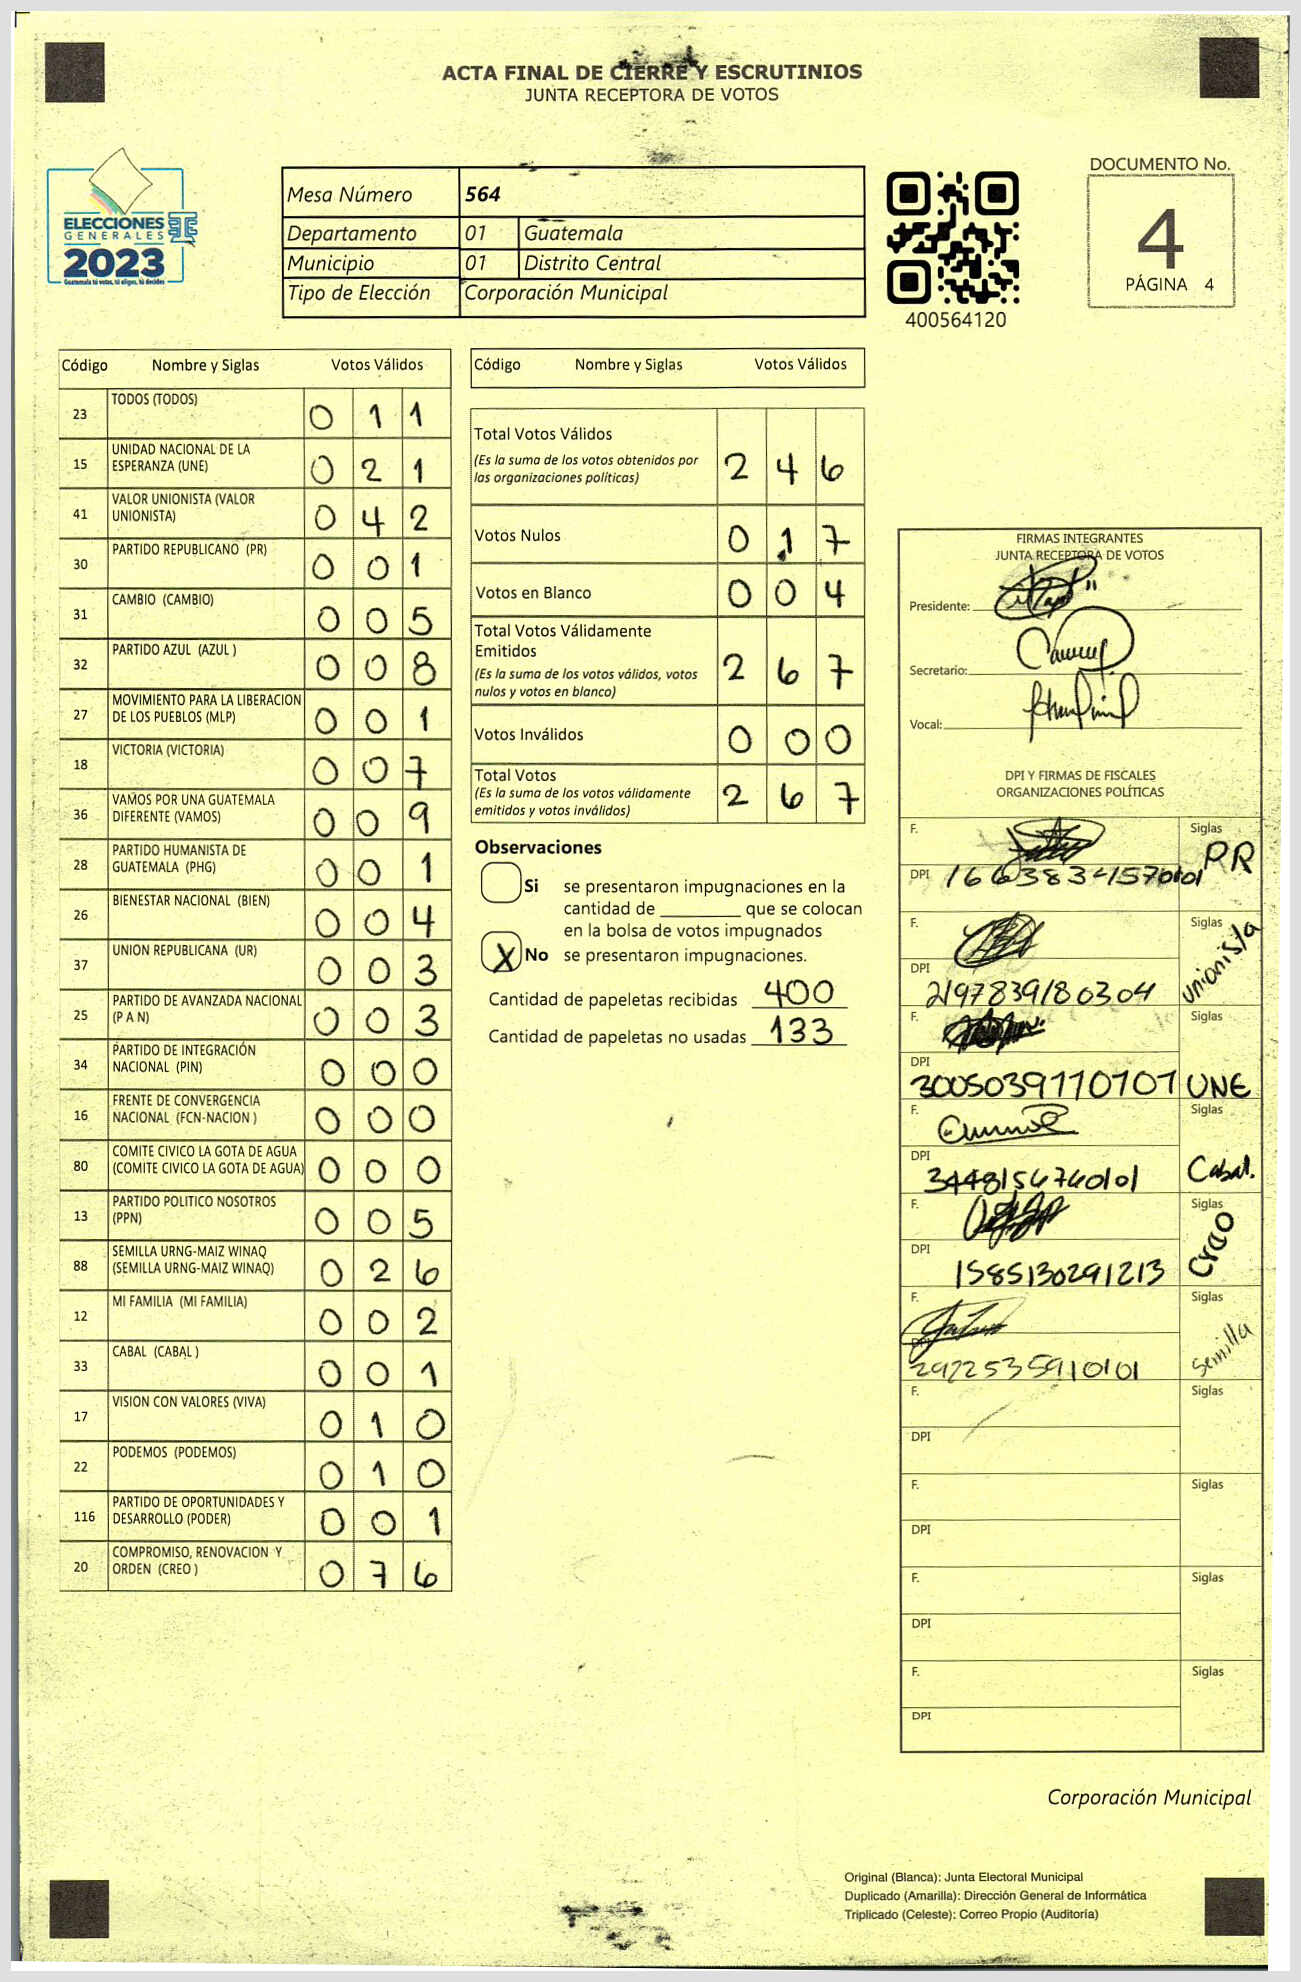 ACTA FINAL DE CIERRE Y ESCRUTINIOS
JUNTA RECEPTORA DE VOTOS
ELECCIONES
GENERALES
2023
Guatemala tú votas, tú eliges, tú decides
Mesa Número 564
Departamento 01 Guatemala
Municipio 01 Distrito Central
Tipo de Elección Corporación Municipal
400564120
DOCUMENTO No.
4
PÁGINA 4
Código Nombre y Siglas Votos Válidos
23 TODOS (TODOS) 0 1 1
15 UNIDAD NACIONAL DE LA
ESPERANZA (UNE) 0 2 1
41 VALOR UNIONISTA (VALOR
UNIONISTA) 0 4 2
30 PARTIDO REPUBLICANO (PR) 0 0 1
31 CAMBIO (CAMBIO) 0 0 5
32 PARTIDO AZUL (AZUL ) 0 0 8
27 MOVIMIENTO PARA LA LIBERACION
DE LOS PUEBLOS (MLP) 0 0 1
18 VICTORIA (VICTORIA) 0 0 7
36 VAMOS POR UNA GUATEMALA
DIFERENTE (VAMOS) 0 0 9
28 PARTIDO HUMANISTA DE
GUATEMALA (PHG) 0 0 1
26 BIENESTAR NACIONAL (BIEN) 0 0 4
37 UNION REPUBLICANA (UR) 0 0 3
25 PARTIDO DE AVANZADA NACIONAL
(P A N) 0 0 3
34 PARTIDO DE INTEGRACIÓN
NACIONAL (PIN) 0 0 0
16 FRENTE DE CONVERGENCIA
NACIONAL (FCN-NACION ) 0 0 0
80 COMITE CIVICO LA GOTA DE AGUA
(COMITE CIVICO LA GOTA DE AGUA) 0 0 0
13 PARTIDO POLITICO NOSOTROS
(PPN) 0 0 5
88 SEMILLA URNG-MAIZ WINAQ
(SEMILLA URNG-MAIZ WINAQ) 0 2 6
12 MI FAMILIA (MI FAMILIA) 0 0 2
33 CABAL (CABAL ) 0 0 1
17 VISION CON VALORES (VIVA) 0 1 0
22 PODEMOS (PODEMOS) 0 1 0
116 PARTIDO DE OPORTUNIDADES Y
DESARROLLO (PODER) 0 0 1
20 COMPROMISO, RENOVACION Y
ORDEN (CREO ) 0 7 6
Código Nombre y Siglas Votos Válidos
Total Votos Válidos
(Es la suma de los votos obtenidos por
las organizaciones políticas) 2 4 6
Votos Nulos 0 1 7
Votos en Blanco 0 0 4
Total Votos Válidamente
Emitidos
(Es la suma de los votos válidos, votos
nulos y votos en blanco) 2 6 7
Votos Inválidos 0 0 0
Total Votos
(Es la suma de los votos válidamente
emitidos y votos inválidos) 2 6 7
Observaciones
Si se presentaron impugnaciones en la
cantidad de ________ que se colocan
en la bolsa de votos impugnados
X No se presentaron impugnaciones.
Cantidad de papeletas recibidas 400
Cantidad de papeletas no usadas 133
FIRMAS INTEGRANTES
JUNTA RECEPTORA DE VOTOS
Presidente:
Secretario:
Vocal:
DPI Y FIRMAS DE FISCALES
ORGANIZACIONES POLÍTICAS
F. Siglas PR
DPI 1663834570101
F. Siglas Unionista
DPI 2197839180304
F. Siglas UNE
DPI 3005039770101
F. Siglas Cabal.
DPI 3448154740101
F. Siglas Creo
DPI 1585130291213
F. Siglas Semilla
DPI 2922535910101
F. Siglas
DPI
F. Siglas
DPI
F. Siglas
DPI
F. Siglas
DPI
Corporación Municipal
Original (Blanca): Junta Electoral Municipal
Duplicado (Amarilla): Dirección General de Informática
Triplicado (Celeste): Correo Propio (Auditoría)